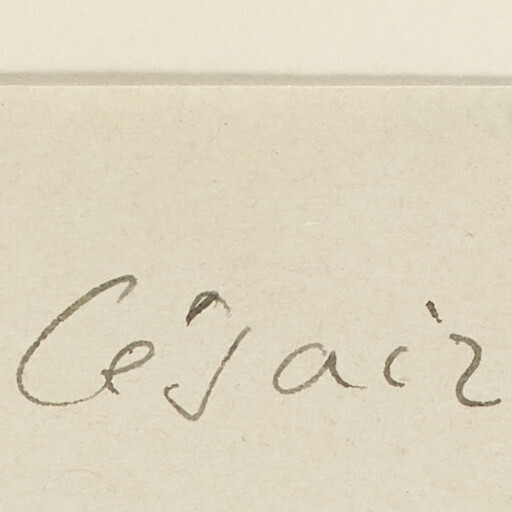 Césair